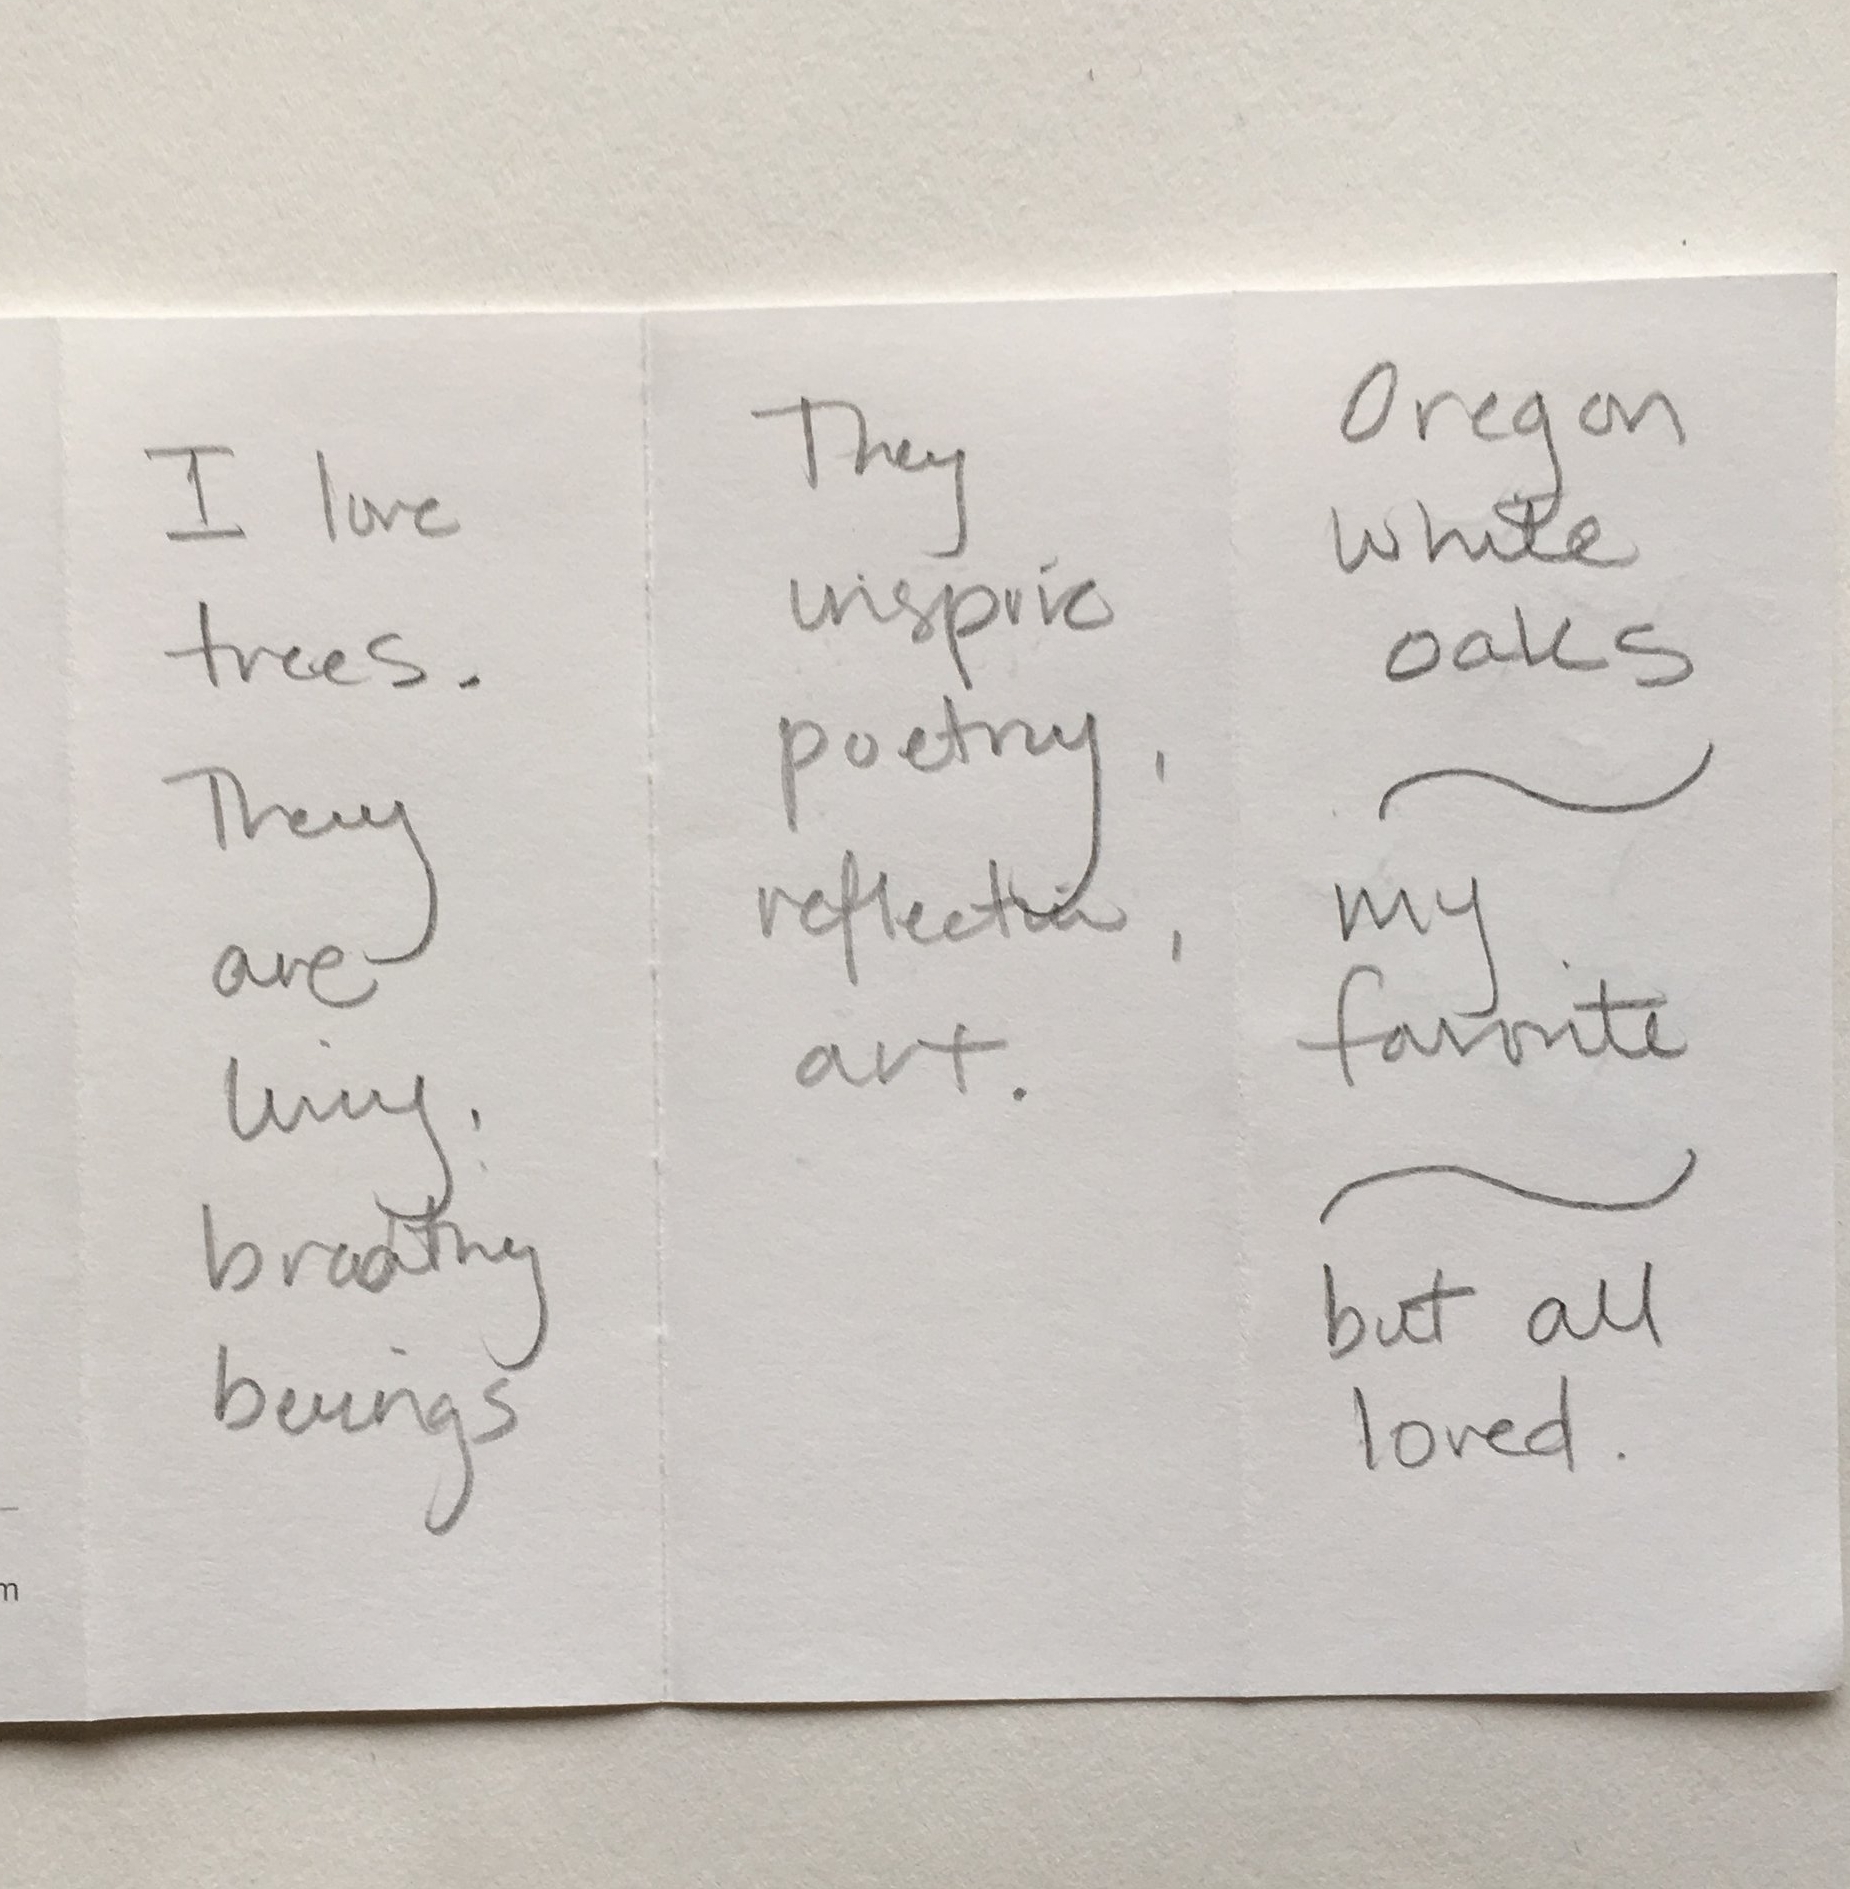 I love
trees.
They
are
living,
breathing
beings
They
inspire
poetry,
reflection,
art.
Oregon
white
oaks
~
my
favorite
~
but all
loved.
m